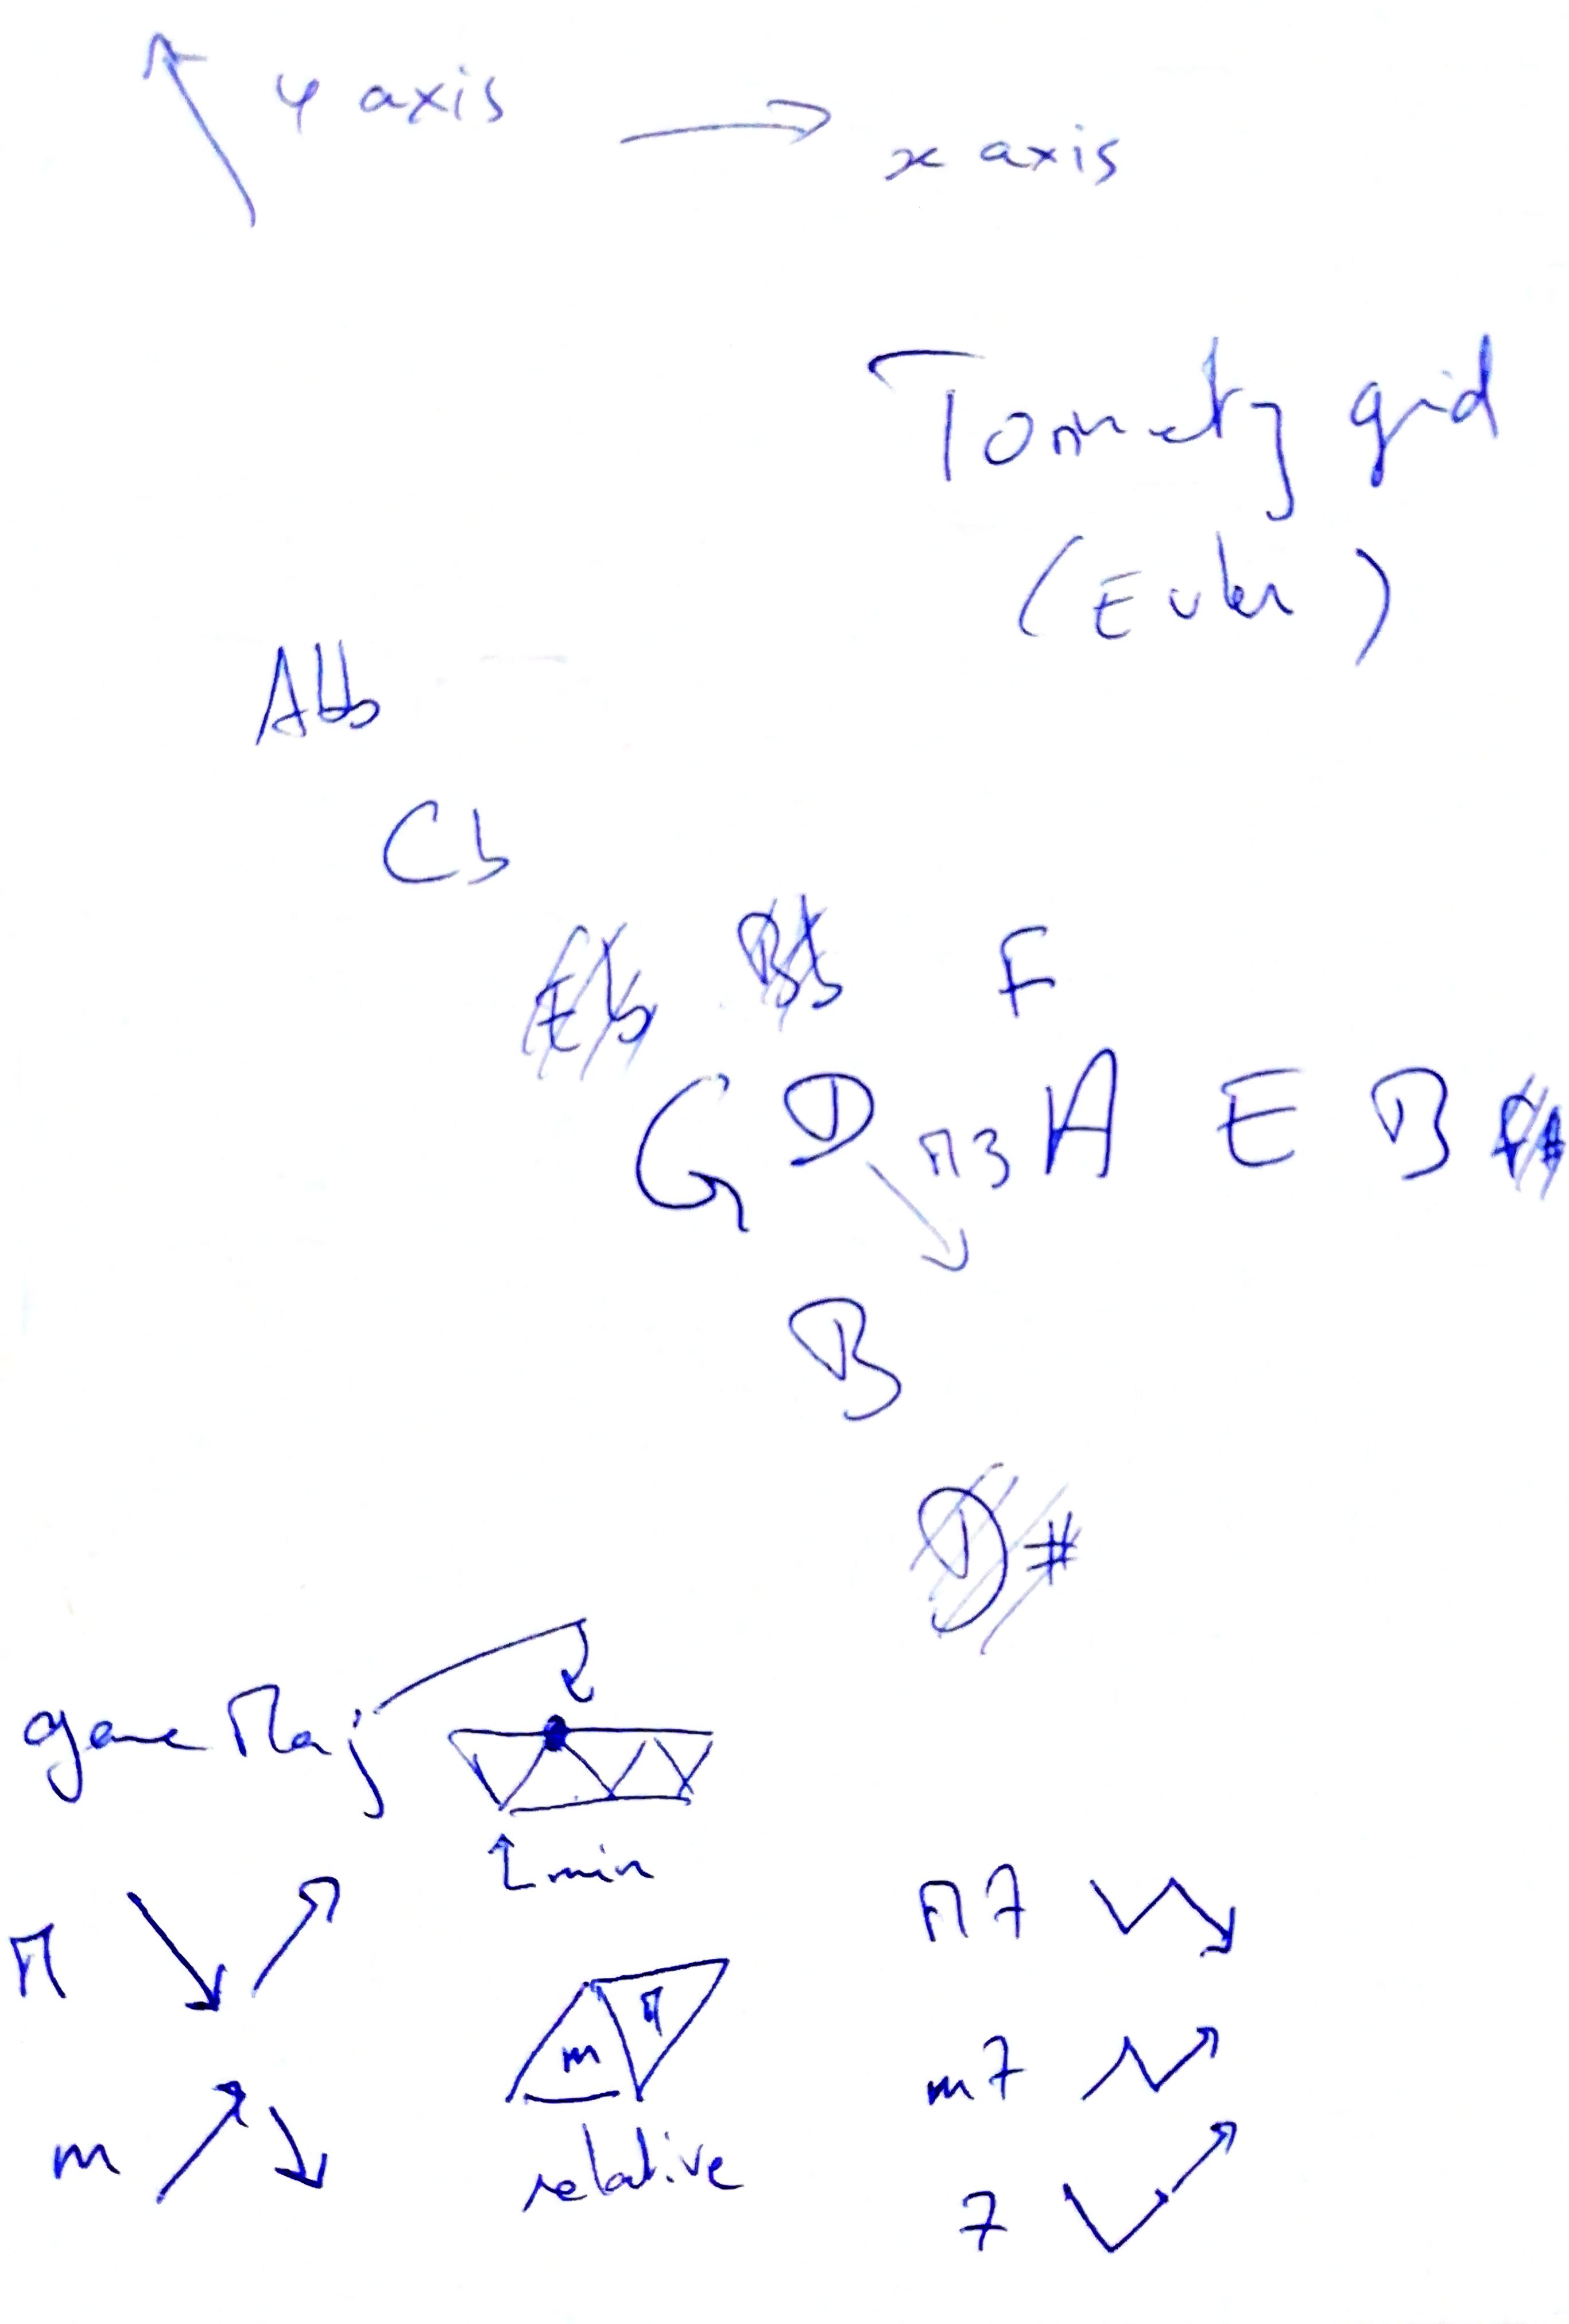 y axis
x axis
Tonnetz grid
(Euler)
Abb
Cb
Eb Bb F
G D M3 A E B F#
B
D#
game Maj
min
M
M7
m M
m7
m
relative
7